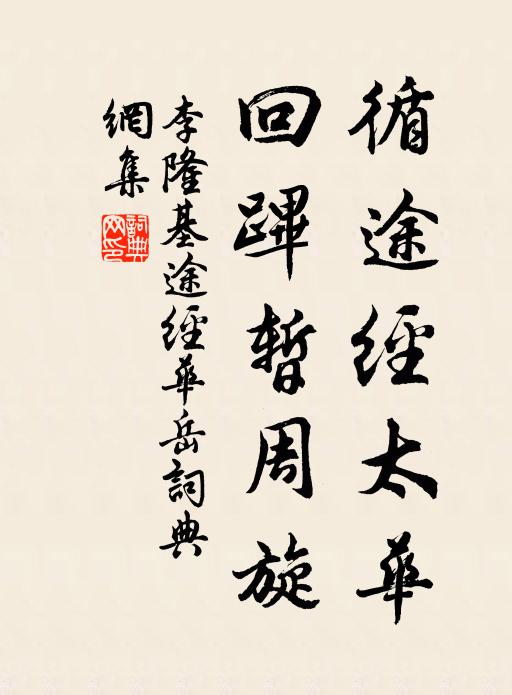 循途經太華
回蹕暫周旋
李隆基途經華岳詞典
網集
詞典
网印